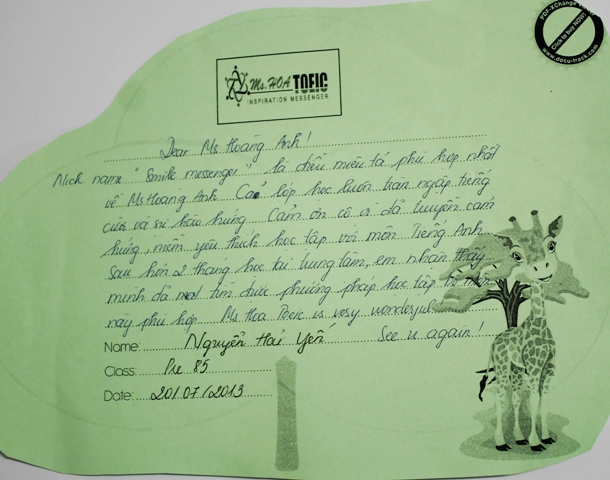 Ms. HOA TOEIC
INSPIRATION MESSENGER
Dear Ms Hoàng Anh!
Nick name "Smile messenger" là điều miêu tả phù hợp nhất
về Ms Hoàng Anh. Cả lớp học luôn tràn ngập tiếng
cười và sự hào hứng. Cảm ơn cô vì đã truyền cảm
hứng, niềm yêu thích học tập với môn Tiếng Anh.
Sau hơn 2 tháng học tại trung tâm, em nhận thấy
mình đã tìm được phương pháp học tập môn
này phù hợp. Ms Hoa Toeic is very wonderful!
Name: Nguyễn Hải Yến See u again!
Class: Pre 85
Date: 20/07/2013
PDF-XChange
Click to buy NOW!
www.docu-track.com